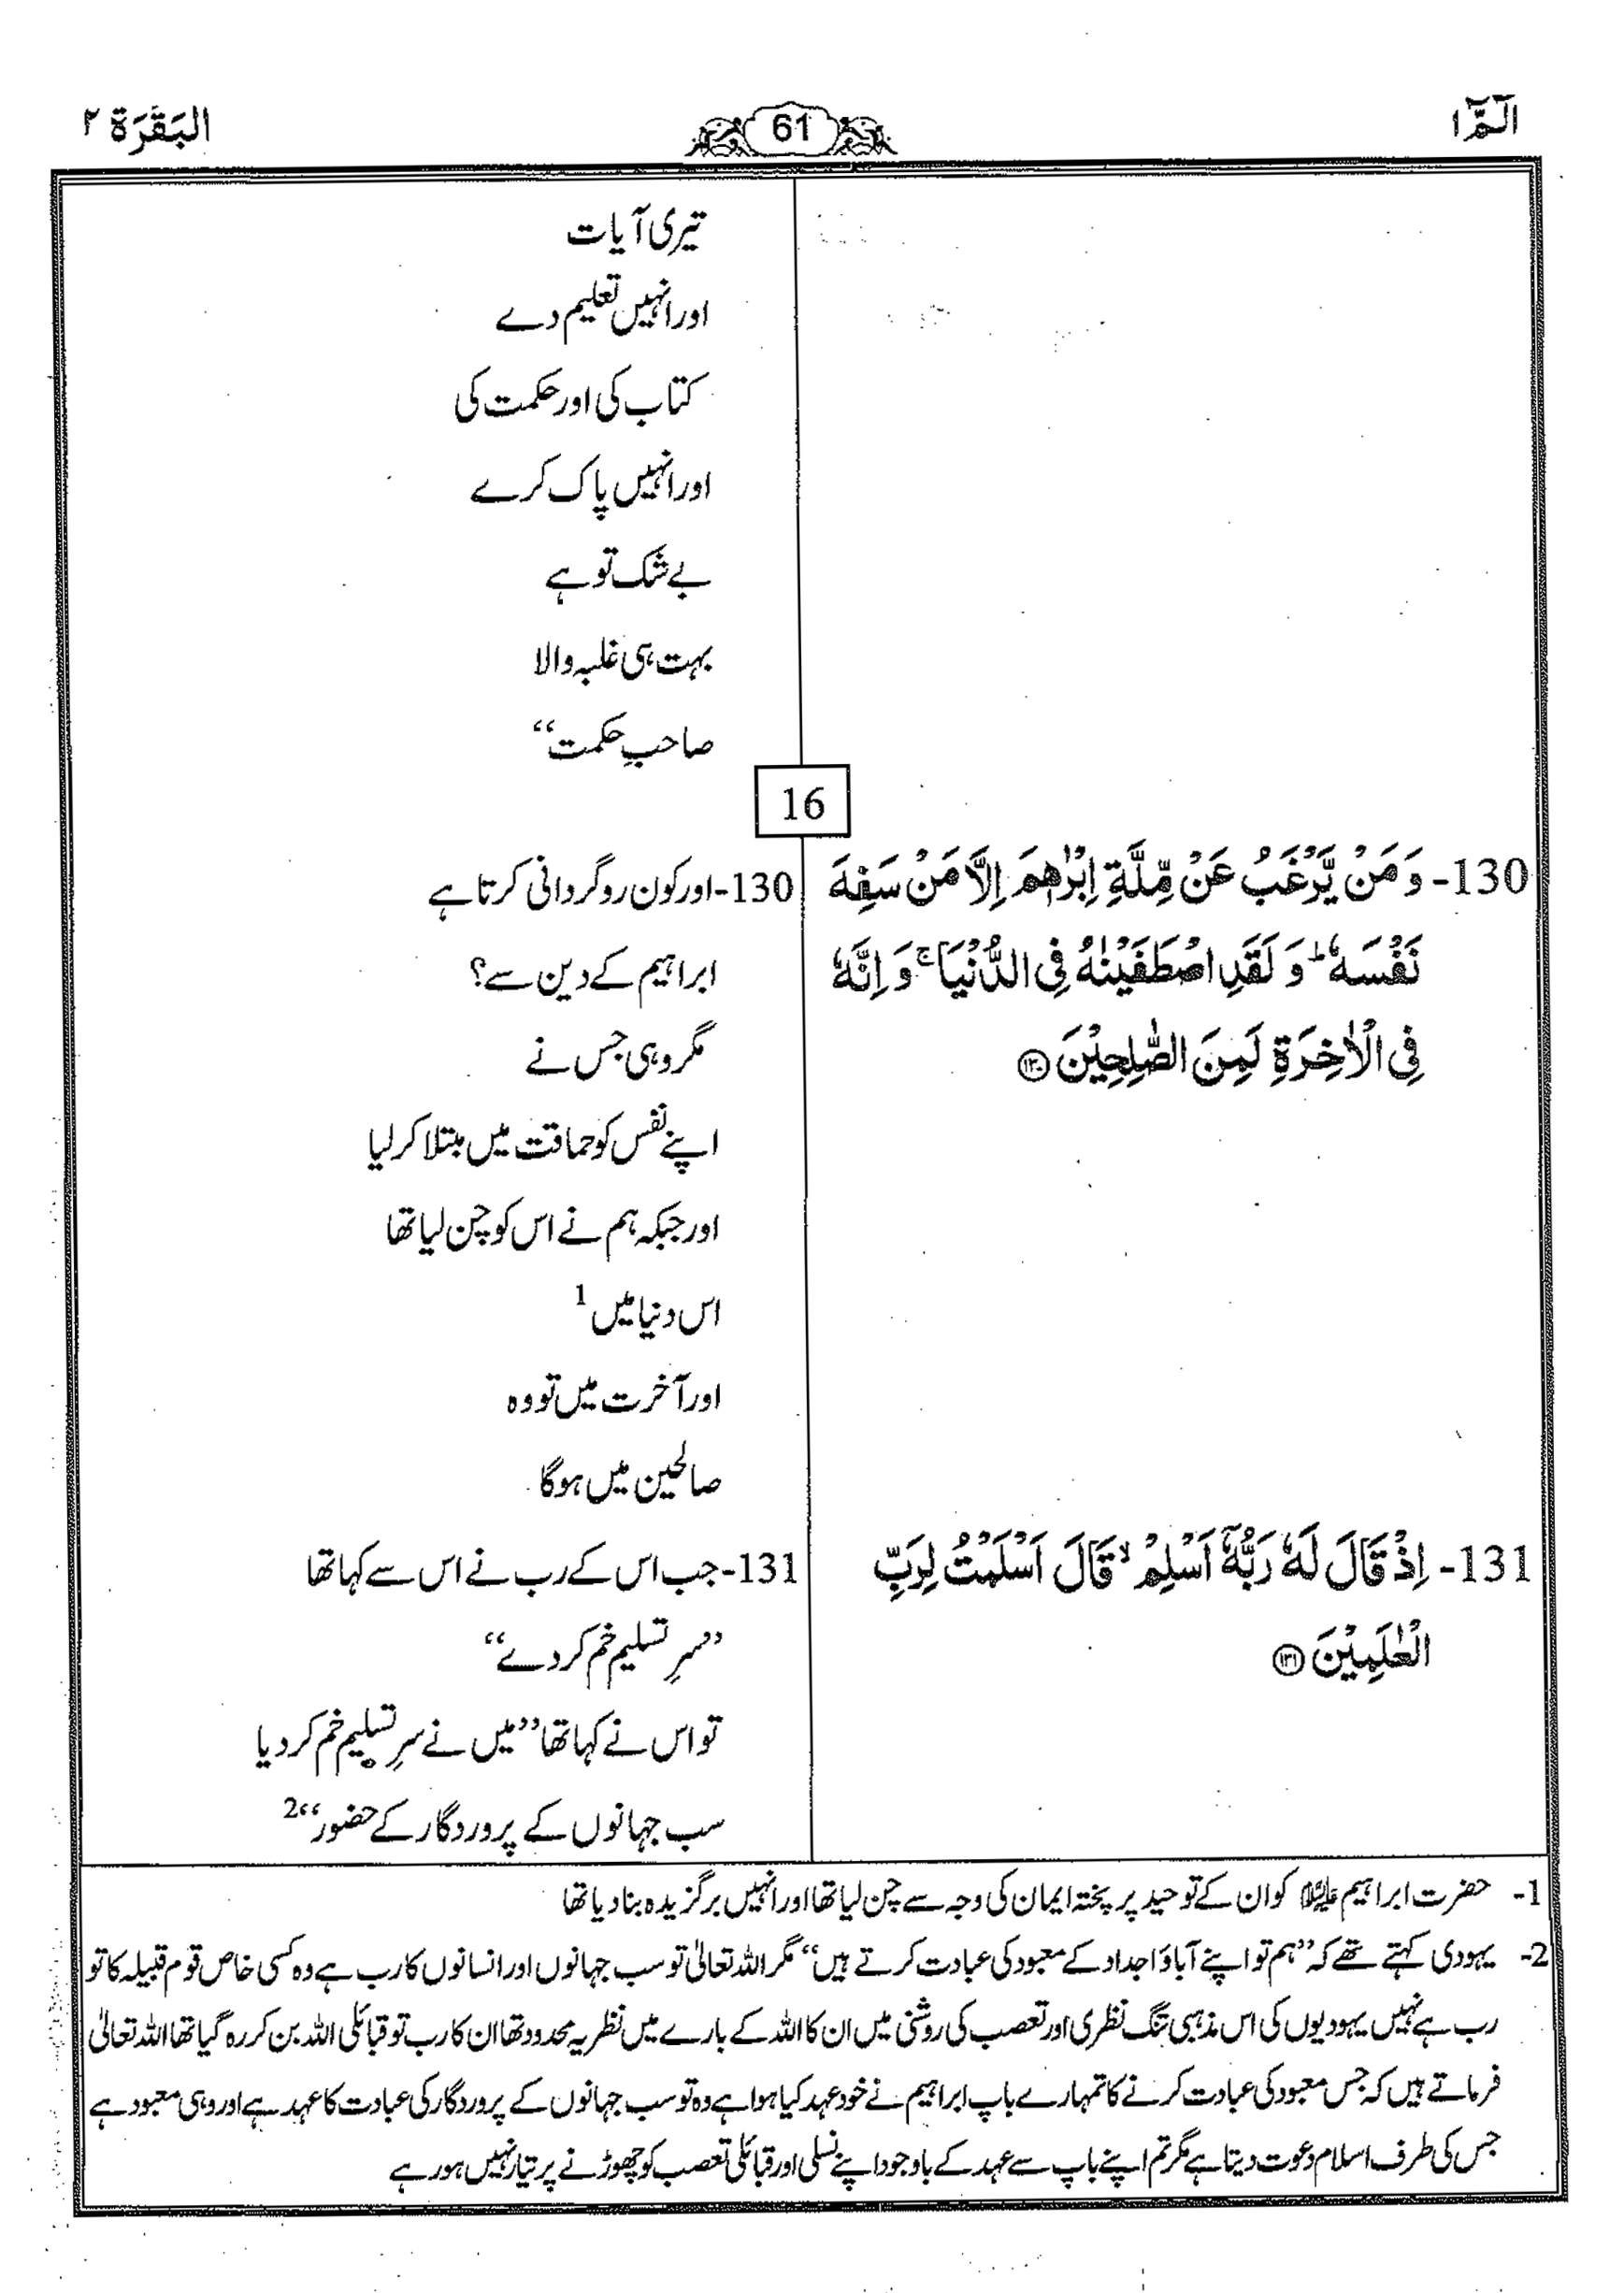 الٓمّٓ ١
61
البَقَرَة ٢
تیری آیات
اور انہیں تعلیم دے
کتاب کی اور حکمت کی
اور انہیں پاک کرے
بے شک تو ہے
بہت ہی غلبہ والا
صاحبِ حکمت“
16
130- وَ مَنْ يَّرْغَبُ عَنْ مِّلَّةِ اِبْرٰهٖمَ اِلَّا مَنْ سَفِهَ
نَفْسَهٗ ؕ وَ لَقَدِ اصْطَفَيْنٰهُ فِي الدُّنْيَا ۚ وَ اِنَّهٗ
فِي الْاٰخِرَةِ لَمِنَ الصّٰلِحِيْنَ ﴿۱۳۰﴾
130- اور کون روگردانی کرتا ہے
ابراہیم کے دین سے؟
مگر وہی جس نے
اپنے نفس کو حماقت میں مبتلا کر لیا
اور جبکہ ہم نے اس کو چن لیا تھا
اس دنیا میں 1
اور آخرت میں تو وہ
صالحین میں ہوگا
131- اِذْ قَالَ لَهٗ رَبُّهٗۤ اَسْلِمْ ۙ قَالَ اَسْلَمْتُ لِرَبِّ
الْعٰلَمِيْنَ ﴿۱۳۱﴾
131- جب اس کے رب نے اس سے کہا تھا
”سرِ تسلیم خم کردے“
تو اس نے کہا تھا ”میں نے سرِ تسلیم خم کر دیا
سب جہانوں کے پروردگار کے حضور“ 2
1- حضرت ابراہیم علیہ السلام کو ان کے توحید پر پختہ ایمان کی وجہ سے چن لیا تھا اور انہیں برگزیدہ بنا دیا تھا
2- یہودی کہتے تھے کہ ”ہم تو اپنے آباؤ اجداد کے معبود کی عبادت کرتے ہیں“ مگر اللہ تعالیٰ تو سب جہانوں اور انسانوں کا رب ہے وہ کسی خاص قوم قبیلہ کا تو
رب ہے نہیں یہودیوں کی اس مذہبی تنگ نظری اور تعصب کی روشنی میں ان کا اللہ کے بارے میں نظریہ محدود تھا ان کا رب تو قبائلی اللہ بن کر رہ گیا تھا اللہ تعالیٰ
فرماتے ہیں کہ جس معبود کی عبادت کرنے کا تمہارے باپ ابراہیم نے خود عہد کیا ہوا ہے وہ تو سب جہانوں کے پروردگار کی عبادت کا عہد ہے اور وہی معبود ہے
جس کی طرف اسلام دعوت دیتا ہے مگر تم اپنے باپ سے عہد کے باوجود اپنے نسلی اور قبائلی تعصب کو چھوڑنے پر تیار نہیں ہو رہے